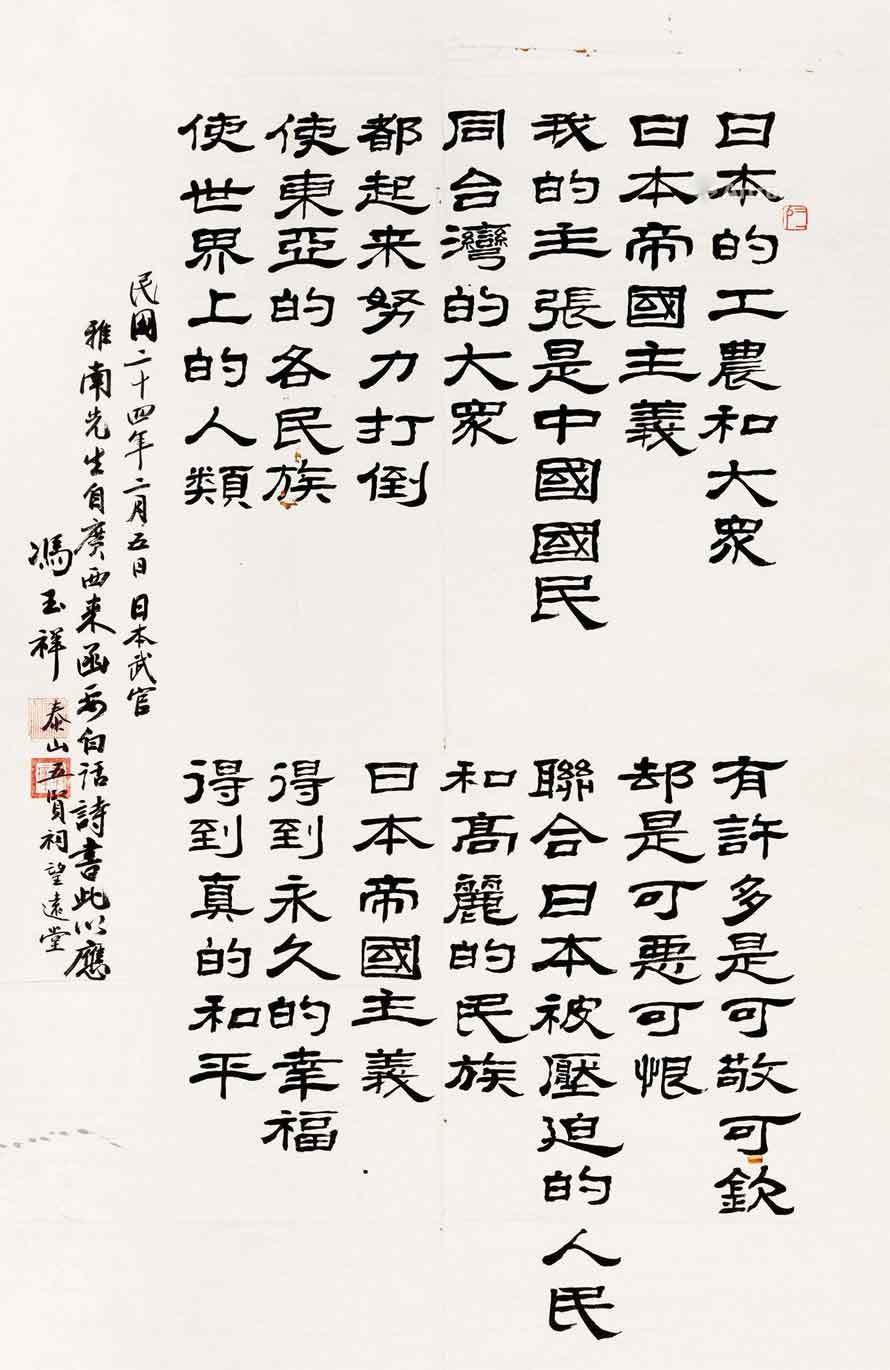 日本的工農和大眾 有許多是可敬可欽
日本帝國主義 却是可惡可恨
我的主張是中國國民 聯合日本被壓迫的人民
同台灣的大眾 和高麗的民族
都起来努力打倒 日本帝國主義
使東亞的各民族 得到永久的幸福
使世界上的人類 得到真的和平
民國二十四年二月五日 日本武官
雅南先生自廣西来函要白话詩書此以應
馮玉祥 泰山五賢祠望遠堂